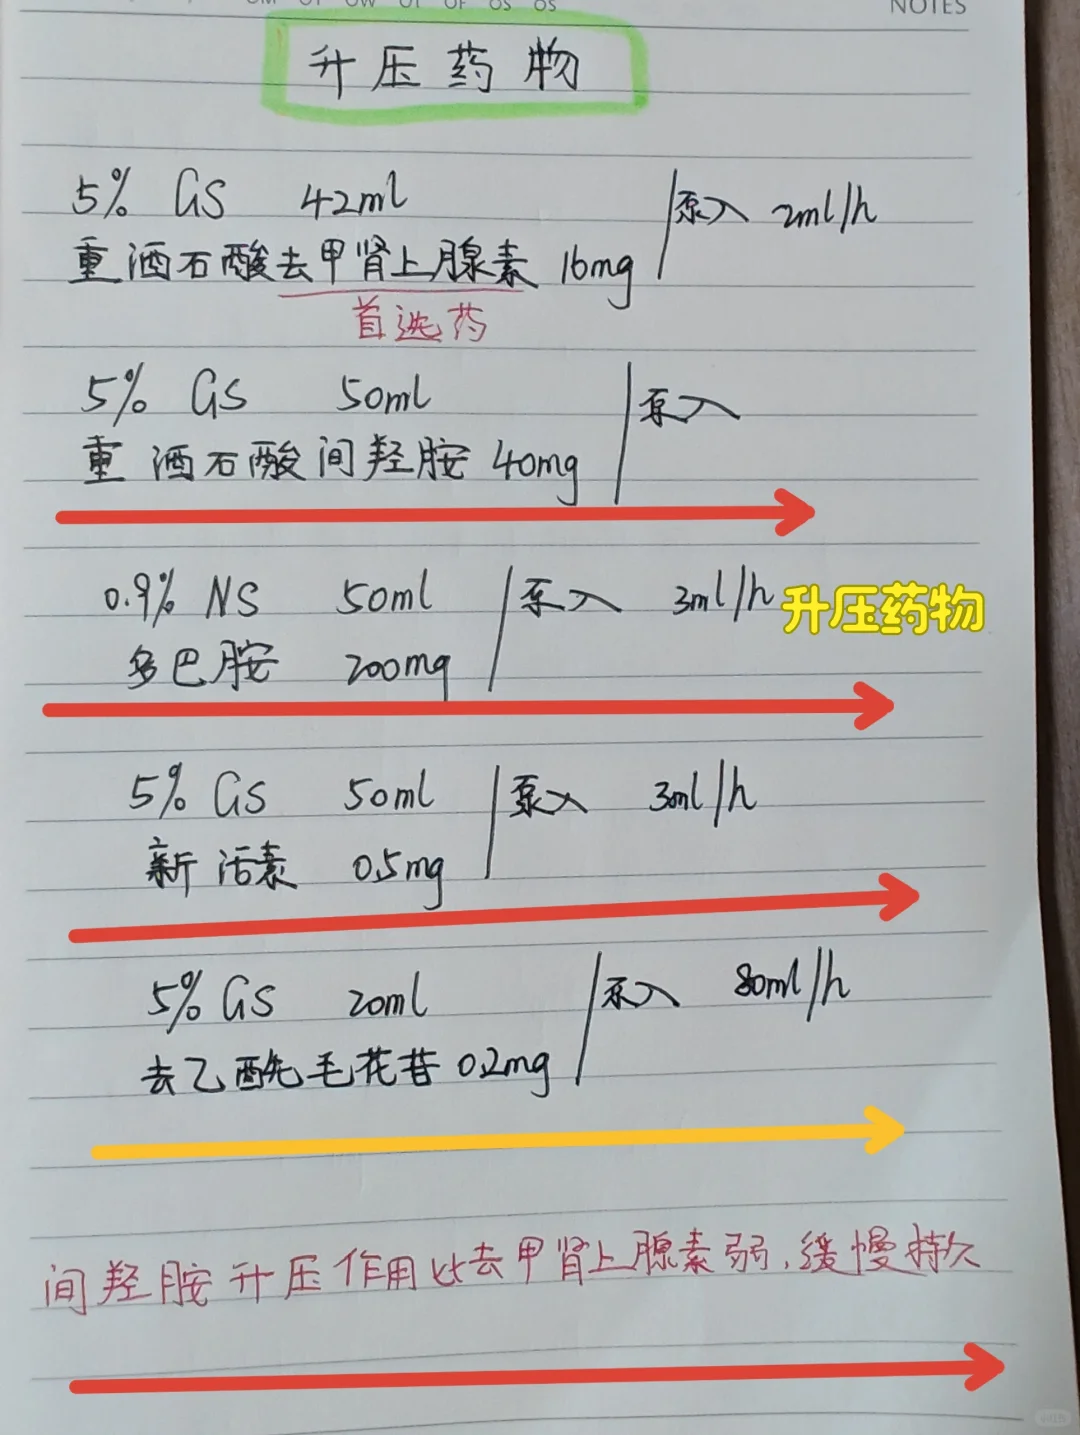 NOTES
升压药物
5% GS 42ml 泵入 2ml/h
重酒石酸去甲肾上腺素 16mg
首选药
5% GS 50ml 泵入
重酒石酸间羟胺 40mg
0.9% NS 50ml 泵入 3ml/h
升压药物
多巴胺 200mg
5% GS 50ml 泵入 3ml/h
新活素 0.5mg
5% GS 20ml 泵入 80ml/h
去乙酰毛花苷 0.2mg
间羟胺升压作用比去甲肾上腺素弱,缓慢持久